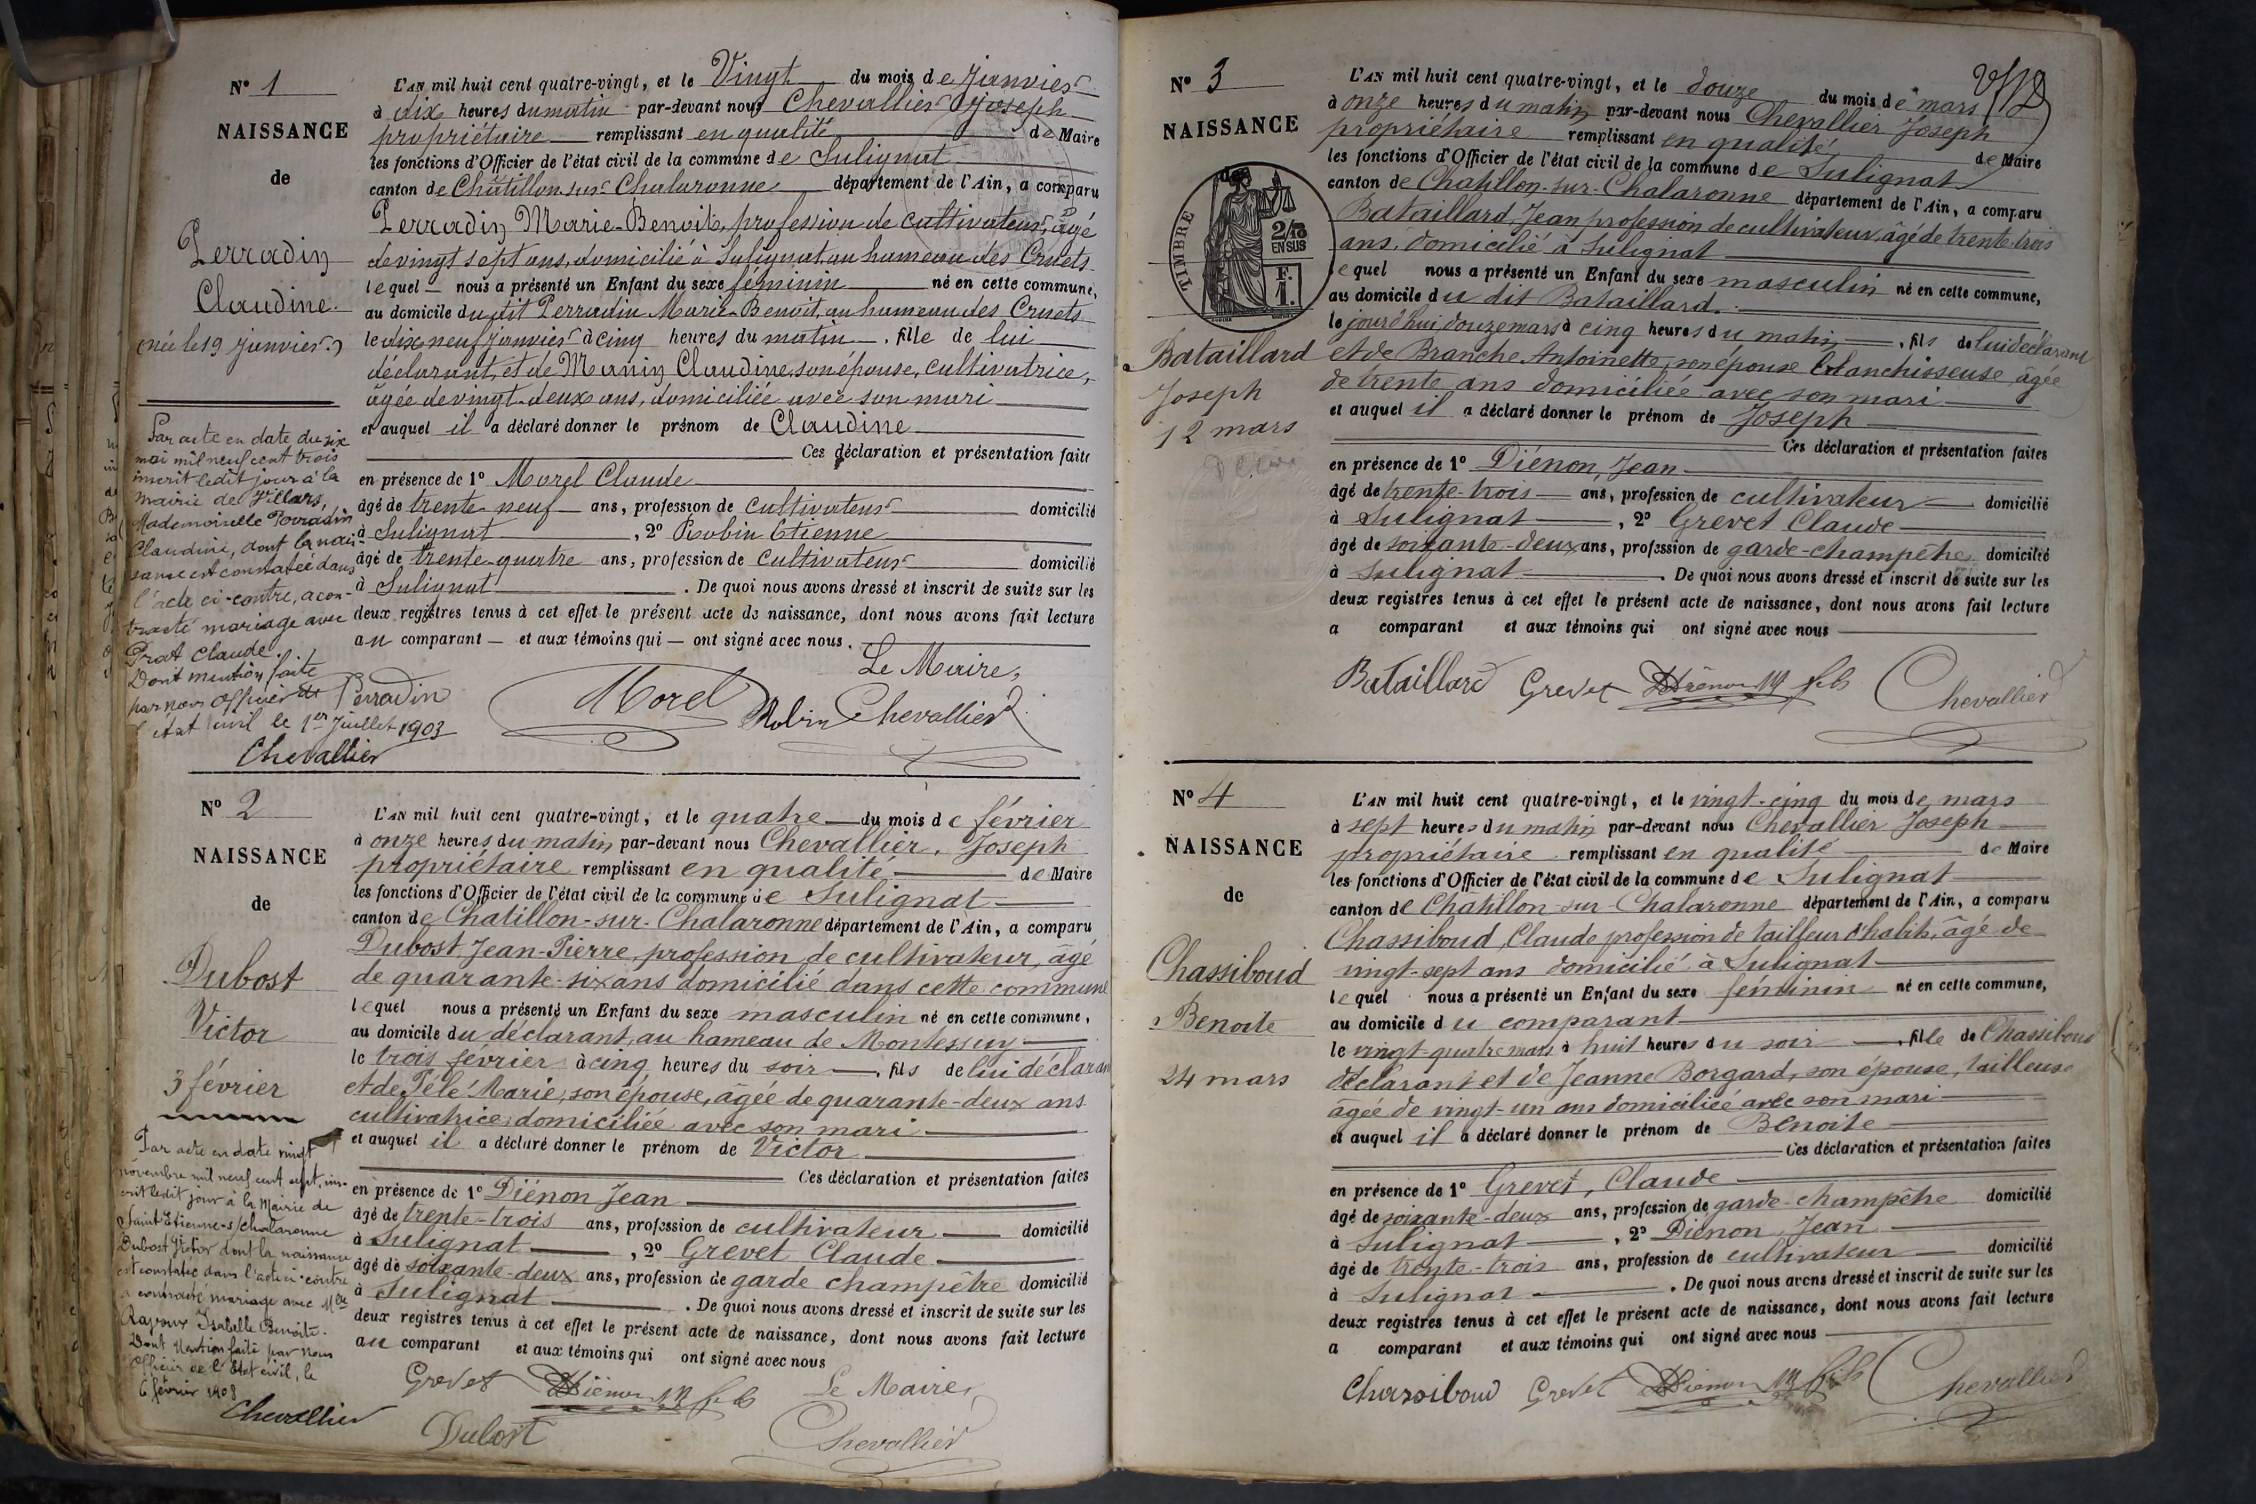 N° 1
NAISSANCE
de
Perradin
Claudine
(née le 19 janvier.)
Par acte en date du six
mai mil neuf cent trois
inscrit ledit jour à la
mairie de Villars,
Mademoiselle Perradin
Claudine, dont la nais-
sance est constatée dans
l'acte ci-contre, a con-
tracté mariage avec
Prat Claude.
Dont mention faite
par nous officier de
l'état civil le 1er Juillet 1903
Chevallier
L'AN mil huit cent quatre-vingt, et le Vingt du mois de Janvier
à dix heures du matin par-devant nous Chevallier Joseph
propriétaire remplissant en qualité de Maire
les fonctions d'Officier de l'état civil de la commune de Sulignat
canton de Châtillon sur Chalaronne département de l'Ain, a comparu
Perradin Marie-Benoit, profession de cultivateur, âgé
de vingt sept ans, domicilié à Sulignat au hameau des Cruets
lequel nous a présenté un Enfant du sexe féminin né en cette commune,
au domicile du dit Perradin Marie-Benoit, au hameau des Cruets
le dix neuf janvier à cinq heures du matin, fille de lui
déclarant, et de Manin Claudine, son épouse, cultivatrice,
âgée de vingt-deux ans, domiciliée avec son mari
et auquel il a déclaré donner le prénom de Claudine
Ces déclaration et présentation faites
en présence de 1° Morel Claude
âgé de trente neuf ans, profession de cultivateur domicilié
à Sulignat, 2° Robin Etienne
âgé de trente-quatre ans, profession de Cultivateur domicilié
à Sulignat. De quoi nous avons dressé et inscrit de suite sur les
deux registres tenus à cet effet le présent acte de naissance, dont nous avons fait lecture
au comparant et aux témoins qui ont signé avec nous.
Le Maire,
Perradin Morel Robin Chevallier
N° 2
NAISSANCE
de
Dubost
Victor
3 février
Par acte en date vingt
novembre mil neuf cent sept, ins-
crit ledit jour à la Mairie de
Saint Etienne-s/Chalaronne
Dubost Victor dont la naissance
est constatée dans l'acte ci-contre
a contracté mariage avec Melle
Isabelle Benoite.
Dont mention faite par nous
officier de l'Etat civil, le
6 février 1908
Chevallier
L'AN mil huit cent quatre-vingt, et le quatre du mois de février
à onze heures du matin par-devant nous Chevallier, Joseph
propriétaire remplissant en qualité de Maire
les fonctions d'Officier de l'état civil de la commune de Sulignat
canton de Châtillon-sur-Chalaronne département de l'Ain, a comparu
Dubost Jean-Pierre, profession de cultivateur, âgé
de quarante-six ans domicilié dans cette commune
lequel nous a présenté un Enfant du sexe masculin né en cette commune,
au domicile du déclarant, au hameau de Montessuy
le trois février à cinq heures du soir, fils de lui déclarant
et de Pélé Marie, son épouse, âgée de quarante-deux ans
cultivatrice, domiciliée avec son mari
et auquel il a déclaré donner le prénom de Victor
Ces déclaration et présentation faites
en présence de 1° Diénon Jean
âgé de trente-trois ans, profession de cultivateur domicilié
à Sulignat, 2° Grevet Claude
âgé de soixante-deux ans, profession de garde champêtre domicilié
à Sulignat. De quoi nous avons dressé et inscrit de suite sur les
deux registres tenus à cet effet le présent acte de naissance, dont nous avons fait lecture
au comparant et aux témoins qui ont signé avec nous
Grevet Diénon fils Le Maire,
Dubost Chevallier
N° 3
NAISSANCE
de
TIMBRE
2/10
EN SUS
F.
1.
Bataillard
Joseph
12 mars
L'AN mil huit cent quatre-vingt, et le douze du mois de mars
à onze heures du matin par-devant nous Chevallier Joseph
propriétaire remplissant en qualité de Maire
les fonctions d'Officier de l'état civil de la commune de Sulignat
canton de Châtillon-sur-Chalaronne département de l'Ain, a comparu
Bataillard, Jean, profession de cultivateur, âgé de trente-trois
ans, domicilié à Sulignat
lequel nous a présenté un Enfant du sexe masculin né en cette commune,
au domicile du dit Bataillard.
le jourd'hui douze mars à cinq heures du matin, fils de lui déclarant
et de Branche Antoinette, son épouse blanchisseuse, âgée
de trente ans domiciliée avec son mari
et auquel il a déclaré donner le prénom de Joseph
Ces déclaration et présentation faites
en présence de 1° Diénon, Jean
âgé de trente-trois ans, profession de cultivateur domicilié
à Sulignat, 2° Grevet Claude
âgé de soixante-deux ans, profession de garde-champêtre domicilié
à Sulignat. De quoi nous avons dressé et inscrit de suite sur les
deux registres tenus à cet effet le présent acte de naissance, dont nous avons fait lecture
a comparant et aux témoins qui ont signé avec nous
Bataillard Grevet Diénon fils Chevallier
N° 4
NAISSANCE
de
Chassiboud
Benoite
24 mars
L'AN mil huit cent quatre-vingt, et le vingt-cinq du mois de mars
à sept heures du matin par-devant nous Chevallier Joseph
propriétaire remplissant en qualité de Maire
les fonctions d'Officier de l'état civil de la commune de Sulignat
canton de Châtillon-sur-Chalaronne département de l'Ain, a comparu
Chassiboud, Claude profession de tailleur d'habits, âgé de
vingt-sept ans domicilié à Sulignat
lequel nous a présenté un Enfant du sexe féminin né en cette commune,
au domicile du comparant
le vingt-quatre mars à huit heures du soir, fille de Chassiboud
déclarant et de Jeanne Borgard, son épouse, tailleuse
âgée de vingt-un ans domiciliée avec son mari
et auquel il a déclaré donner le prénom de Benoite
Ces déclaration et présentation faites
en présence de 1° Grevet, Claude
âgé de soixante-deux ans, profession de garde-champêtre domicilié
à Sulignat, 2° Diénon, Jean
âgé de trente-trois ans, profession de cultivateur domicilié
à Sulignat. De quoi nous avons dressé et inscrit de suite sur les
deux registres tenus à cet effet le présent acte de naissance, dont nous avons fait lecture
a comparant et aux témoins qui ont signé avec nous
Chassiboud Grevet Diénon fils Chevallier